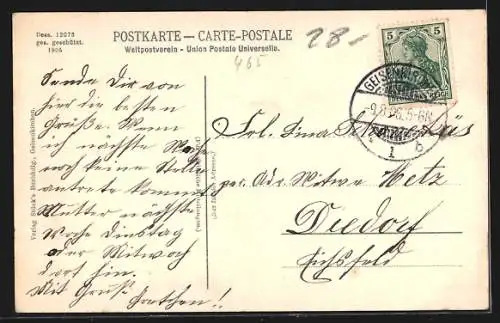 Dess. 12273
ges. geschützt.
1905
POSTKARTE — CARTE-POSTALE
Weltpostverein - Union Postale Universelle.
28.-
465
5 5
GELSENKIRCHEN
-9.8.06.5-6N
1 b
Sende Dir von
hier die besten
Grüße. Wenn
ich nächste Woche
noch keine Stelle
antrete kommt
Mutter nächste
Woche Dienstag
oder Mittwoch
dort hin.
Mit Gruß
Gretchen!!
Frl. Dina
per Adr. Witwe Metz
Diedorf
Eichsfeld
Verlag Bückʼs Buchhdlg. Gelsenkirchen